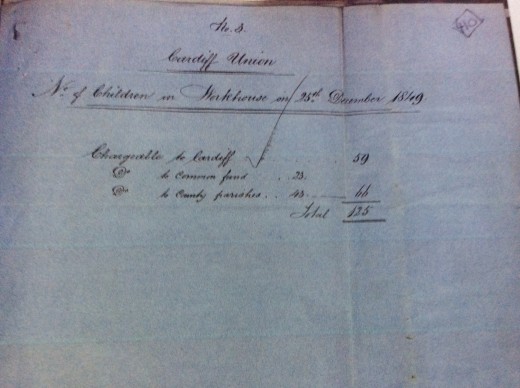 No. 3.
Cardiff Union
No. of Children in Workhouse on 25th December 1849
Chargeable to Cardiff . . . . . . 59
Do to Common fund . . 23.
Do to County parishes . . 43. 66
Total 125